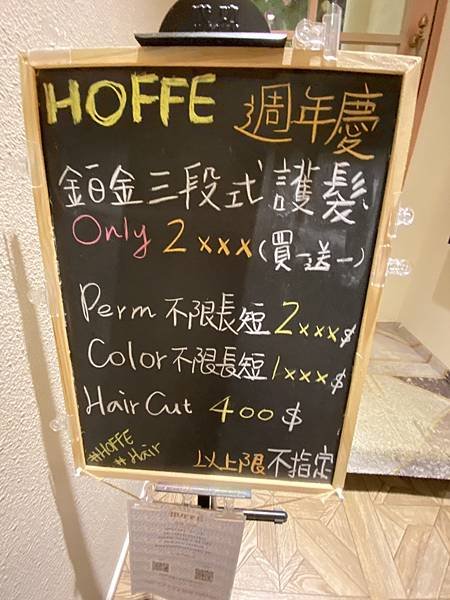 HOFFE 週年慶
鉑金三段式護髮
Only 2xxx(買一送一)
Perm 不限長短 2xxx$
Color 不限長短 1xxx$
Hair Cut 400$
#HOFFE
#Hair
以上限不指定
HOFFE